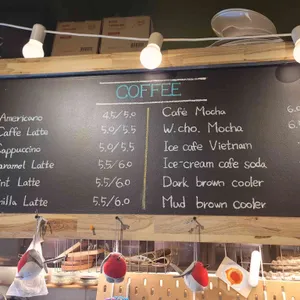 COFFEE
Americano 4.5/5.0
Caffé Latte 5.0/5.5
Cappuccino 5.0/5.5
Caramel Latte 5.5/6.0
Latte 5.5/6.0
Vanilla Latte 5.5/6.0
Café Mocha
W.cho. Mocha
Ice cafe Vietnam
Ice-cream cafe soda
Dark brown cooler
Mud brown cooler